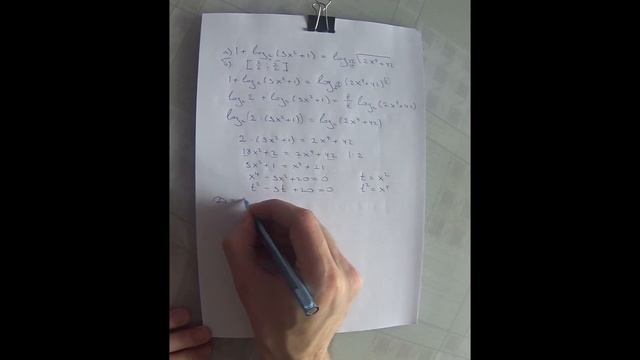 а) 1 + log₂(9x²+1) = log_√2 √(2x⁴+42)
б)
1 + log₂(9x²+1) = log_√2 (2x⁴+42)^½
log₂2 + log₂(9x²+1) = log₂(2x⁴+42)
log₂(2·(9x²+1)) = log₂(2x⁴+42)
2·(9x²+1) = 2x⁴+42
18x²+2 = 2x⁴+42 |:2
9x²+1 = x⁴+21
x⁴-9x²+20=0 t=x²
t²-9t+20=0 t²=x⁴